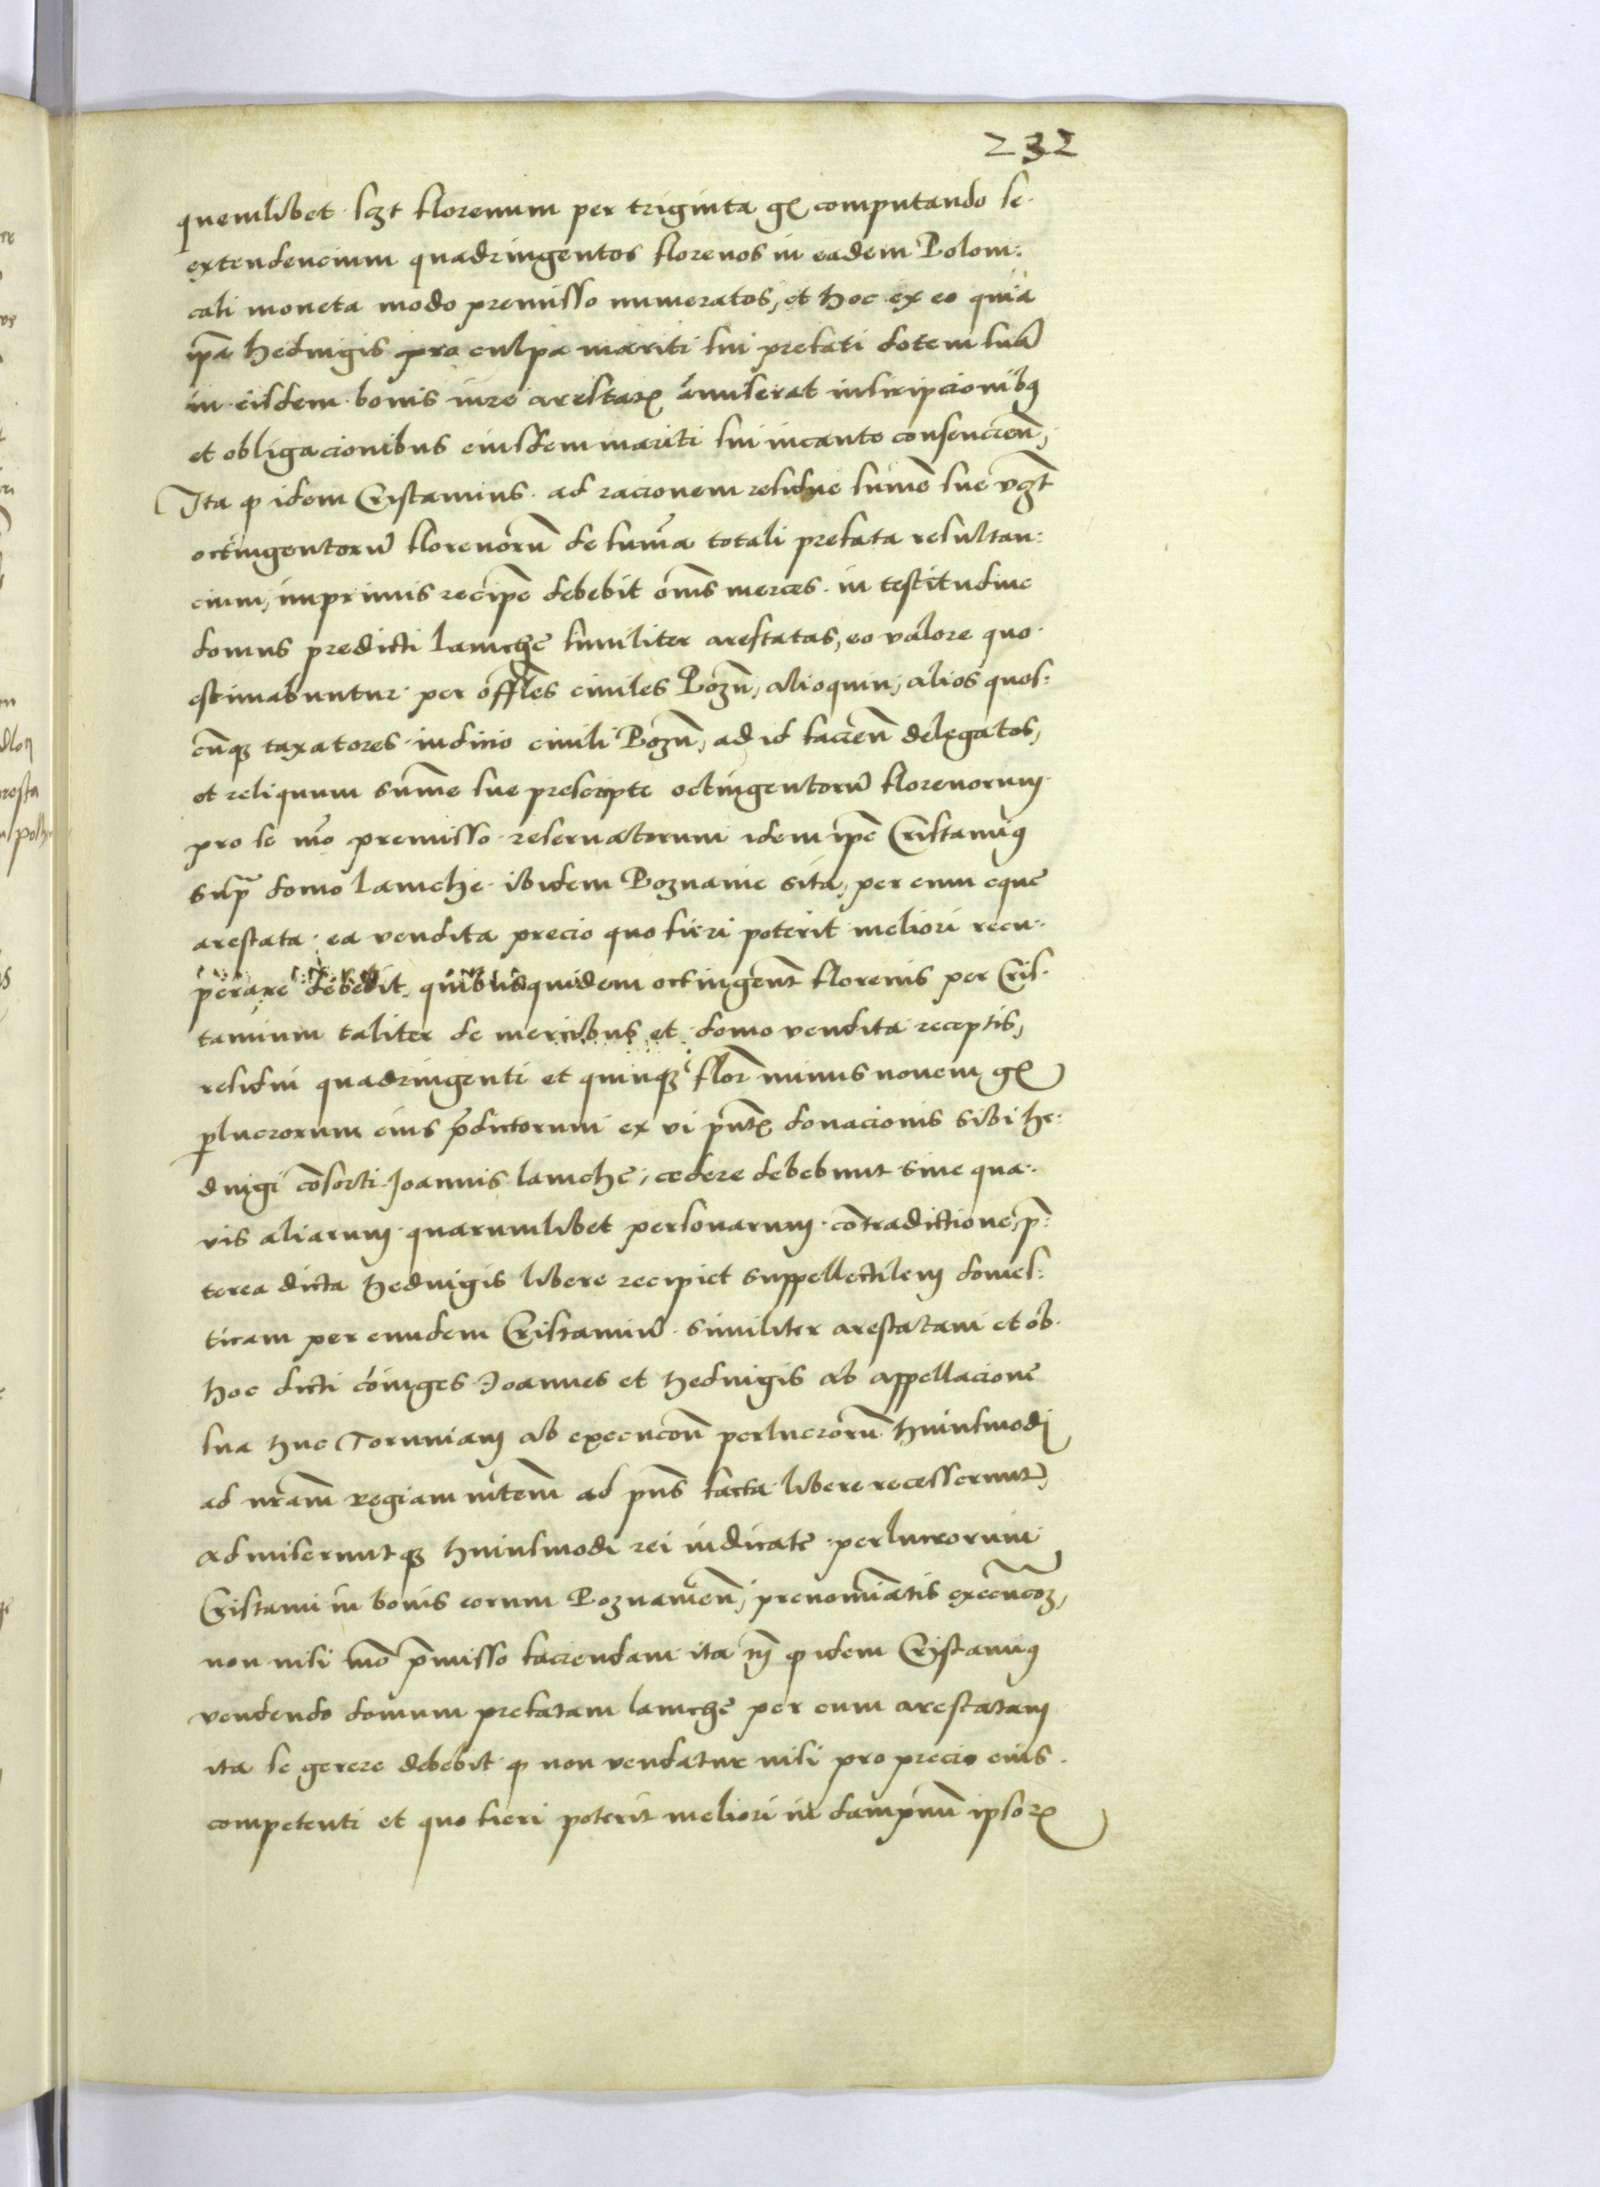 232
quemlibet scꝫt florenum per triginta gꝭ computando se
extendencium quadringentos florenos in eadem Poloni:
cali moneta modo premisso numeratos, et hoc ex eo quia
ipā Hedvigis pro culpa mariti sui prefati dotem suā
in eisdem bonis iure arestatꝭ amiserat inscripcionibꝫ
et obligacionibus eiusdem mariti sui incaute consencień,
Ita ꝙ idem Cristannus ad racionem residue summe sue vꝫt
octingentorū florenorū de summa totali prefata resultan:
cium, imprimis recipe debebit omēs merces in testitudine
domus predicti Lamche similiter arestatas, eo valore quo
estimabuntur per offles civiles Pozń, alioquin, alios quos:
cūqꝫ taxatores iudicio civili Pozń, ad id facień delegatos,
et reliquum summe sue prescripte octingentorū florenorum
pro se mo premisso reservatorum idem ipe Cristannꝰ
supra domo Lamche ibidem Poznanie sita, per eum eque
arestata ea vendita precio quo fieri poterit meliori recu:
perare debebit, quibusquidem octingent florenis per Cris:
tannum taliter de mercibus et domo vendita receptis,
residui quadringenti et quinqꝫ flor minus novem gꝭ
ꝑlucrorum eius p̄dictorum ex vi pntꝭ donacionis sibi He:
dvigi cōsorti Joannis Lamche, cedere debebunt sine qua:
vis aliarum quarumlibet personarum contradictione, p̄:
terea dicta Hedvigis libere recipiet suppellectilem domes:
ticam per eundem Cristannū similiter arestatam et ob
hoc dicti coniuges Joannes et Hedvigis ab appellacione
sua huc Toruniam ab execucōń perlucrorū huiusmodi
ad nrām regiam mtēm ad pns facta libere recesserunt,
admiseruntqꝫ huiusmodi rei iudicate perlucrorum
Cristanni in bonis eorum Poznanień, prenominatis execucōꝫ,
non nisi mo p̄misso faciendam ita tn̄ ꝙ idem Cristannꝰ
vendendo domum prefatam Lamche per eum arestatam
ita se gerere debebit ꝙ non vendatur nisi pro precio eius
competenti et quo fieri poterit meliori in dampnū ipsorꝭ